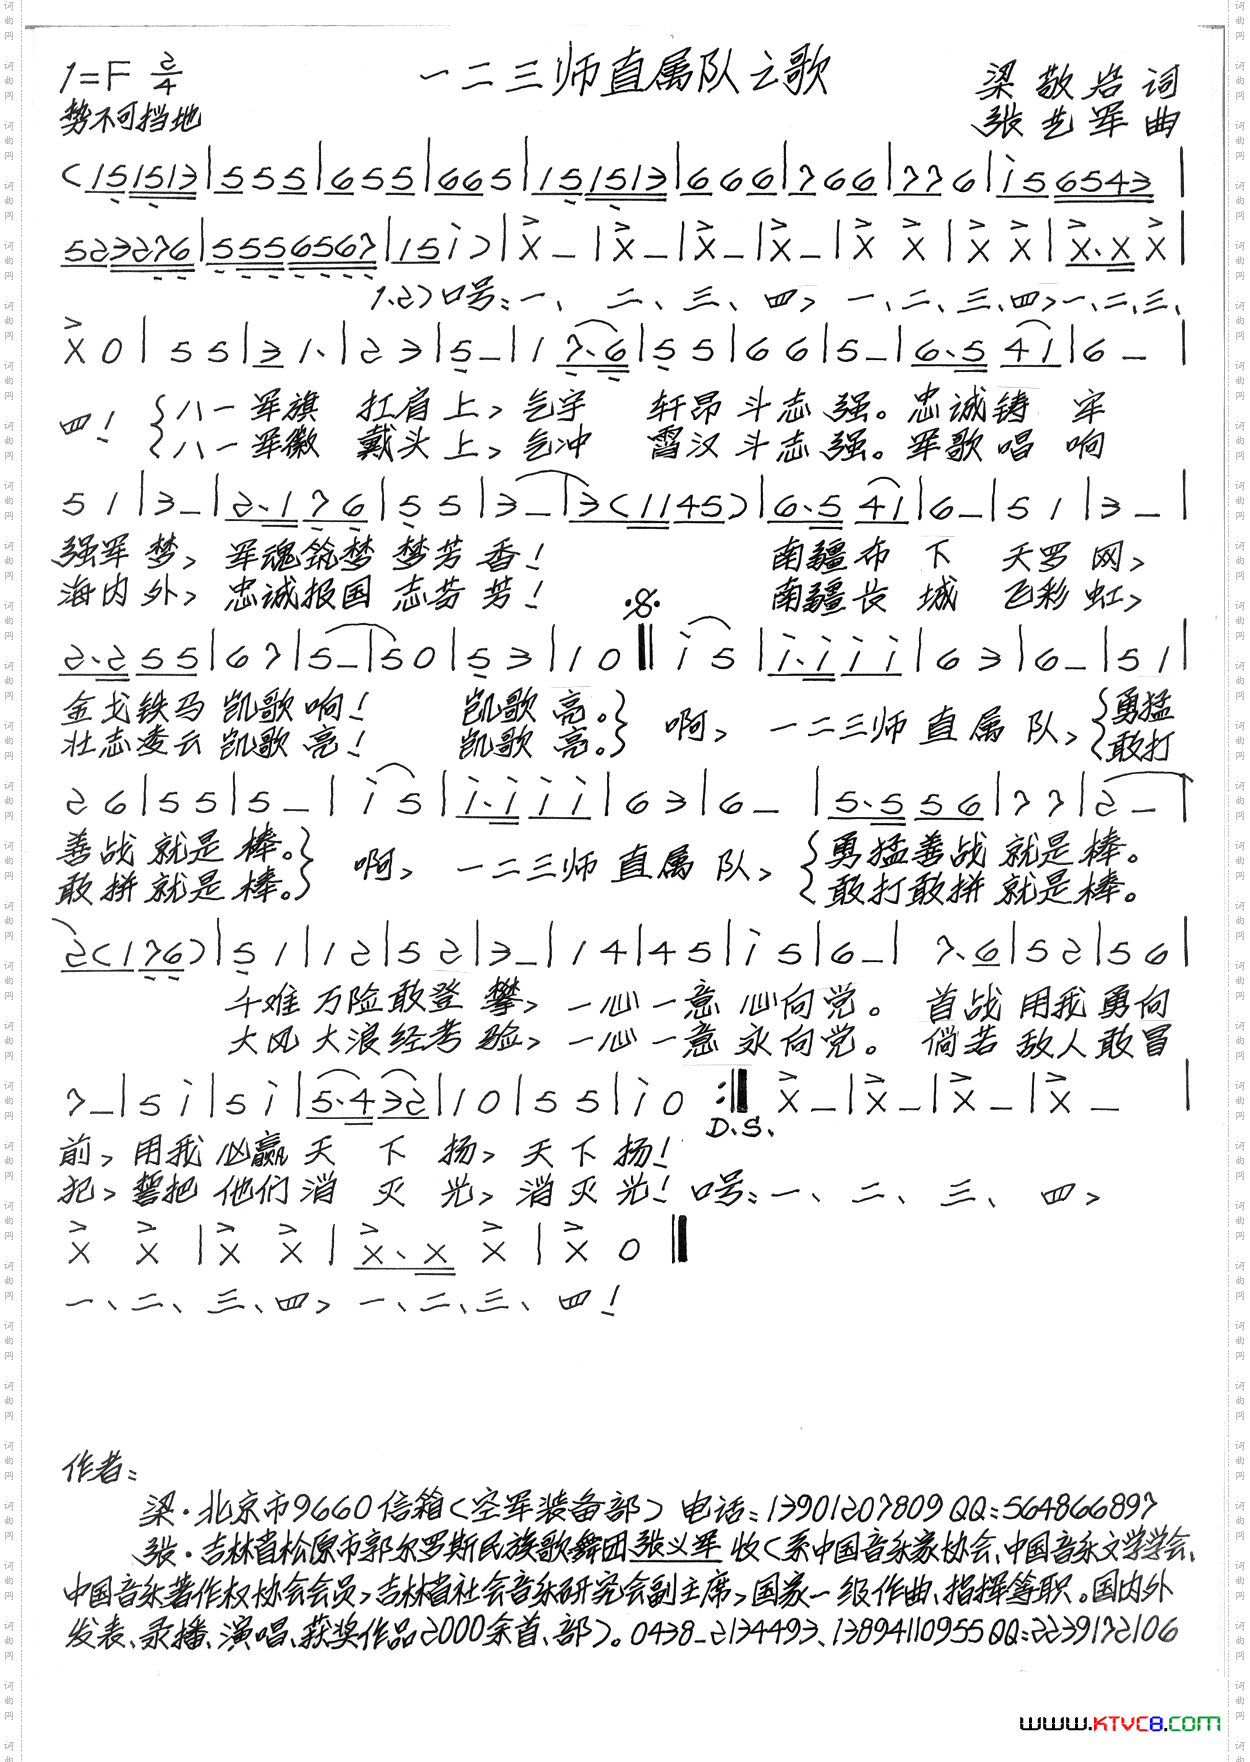 1=F 2/4 一二三师直属队之歌 梁敬岩 词
势不可挡地 张艺军 曲
(151513|555|655|665|151513|666|766|776|i56543|
523276|5556567|15i)|X̂ －|X －|X －|X －|X X|X X|X.X X|
1.2)口号:一、 二、三、四, 一、二、三、四,一、二、三、
X 0|5 5|3 1.|2 3|5 －|1 7.6|5 5|6 6|5 －|6.5 41|6 －|
四! {八一军旗 扛肩上,气宇 轩昂斗志强。忠诚铸 牢
八一军徽 戴头上,气冲 霄汉斗志强。军歌唱 响
5 1|3 －|2.1 76|5 5|3 －|3(1145)|6.5 41|6 －|5 1|3 －|
强军梦, 军魂筑梦 梦芳香! 南疆布 下 天罗网,
海内外, 忠诚报国 志芬芳! 南疆长 城 飞彩虹,
2.2 55|6 7|5 －|5 0|5 3|1 0‖i 5|i.i i i|6 3|6 －|5 1|
金戈铁马 凯歌响! 凯歌亮。} 啊, 一二三师直属 队,{勇猛
壮志凌云 凯歌亮! 凯歌亮。 敢打
2 6|5 5|5 －|i 5|i.i i i|6 3|6 －|5.5 56|7 7|2 －|
善战就是棒。} 啊, 一二三师直属 队, {勇猛善战就是棒。
敢拼就是棒。 敢打敢拼就是棒。
2(176)|5 1|1 2|5 2|3 －|1 4|4 5|i 5|6 －|7.6|5 2|5 6|
千难万险敢登攀, 一心一意心向党。 首战用我勇向
大风大浪经考验, 一心一意永向党。 倘若敌人敢冒
7 －|5 i|5 i|5.4 32|1 0|5 5|i 0:‖X －|X －|X －|X －|
D.S.
前,用我必赢天 下 扬, 天下扬!
犯,誓把他们消 灭 光, 消灭光! 口号:一、 二、 三、 四,
X X|X X|X.X X|X 0‖
一、二、三、四, 一、二、三、四!
作者:
梁·北京市9660信箱(空军装备部) 电话:13901207809 QQ:564866897
张·吉林省松原市郭尔罗斯民族歌舞团张义军 收(系中国音乐家协会、中国音乐文学学会、
中国音乐著作权协会会员,吉林省社会音乐研究会副主席,国家一级作曲、指挥等职。国内外
发表、录播、演唱、获奖作品2000余首、部)。0438-2134493、13894110955 QQ:2239172106
www.KTVC8.com